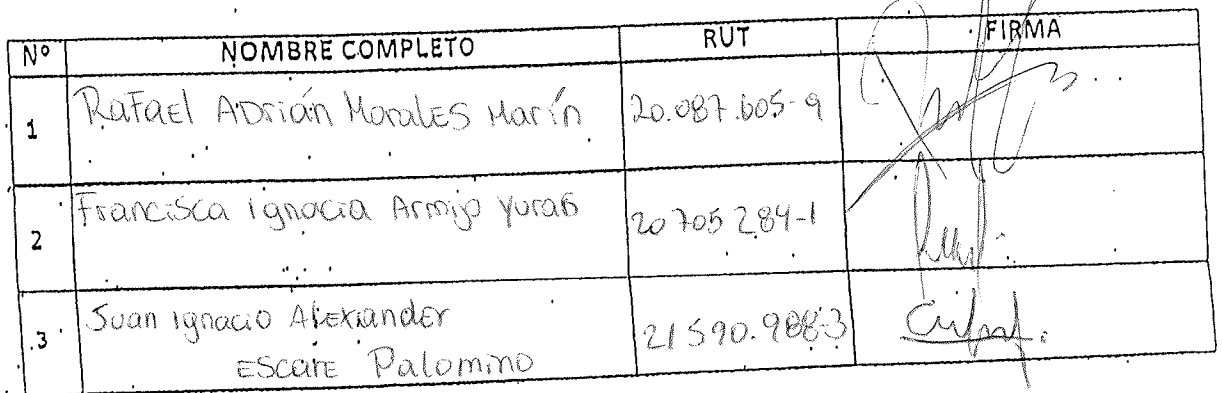 Nº NOMBRE COMPLETO RUT FIRMA
1 Rafael Adrián Morales Marín 20.087.605-9
2 Francisca Ignacia Armijo Yuras 20705284-1
3 Juan Ignacio Alexiander
Escare Palomino 21590.988-3